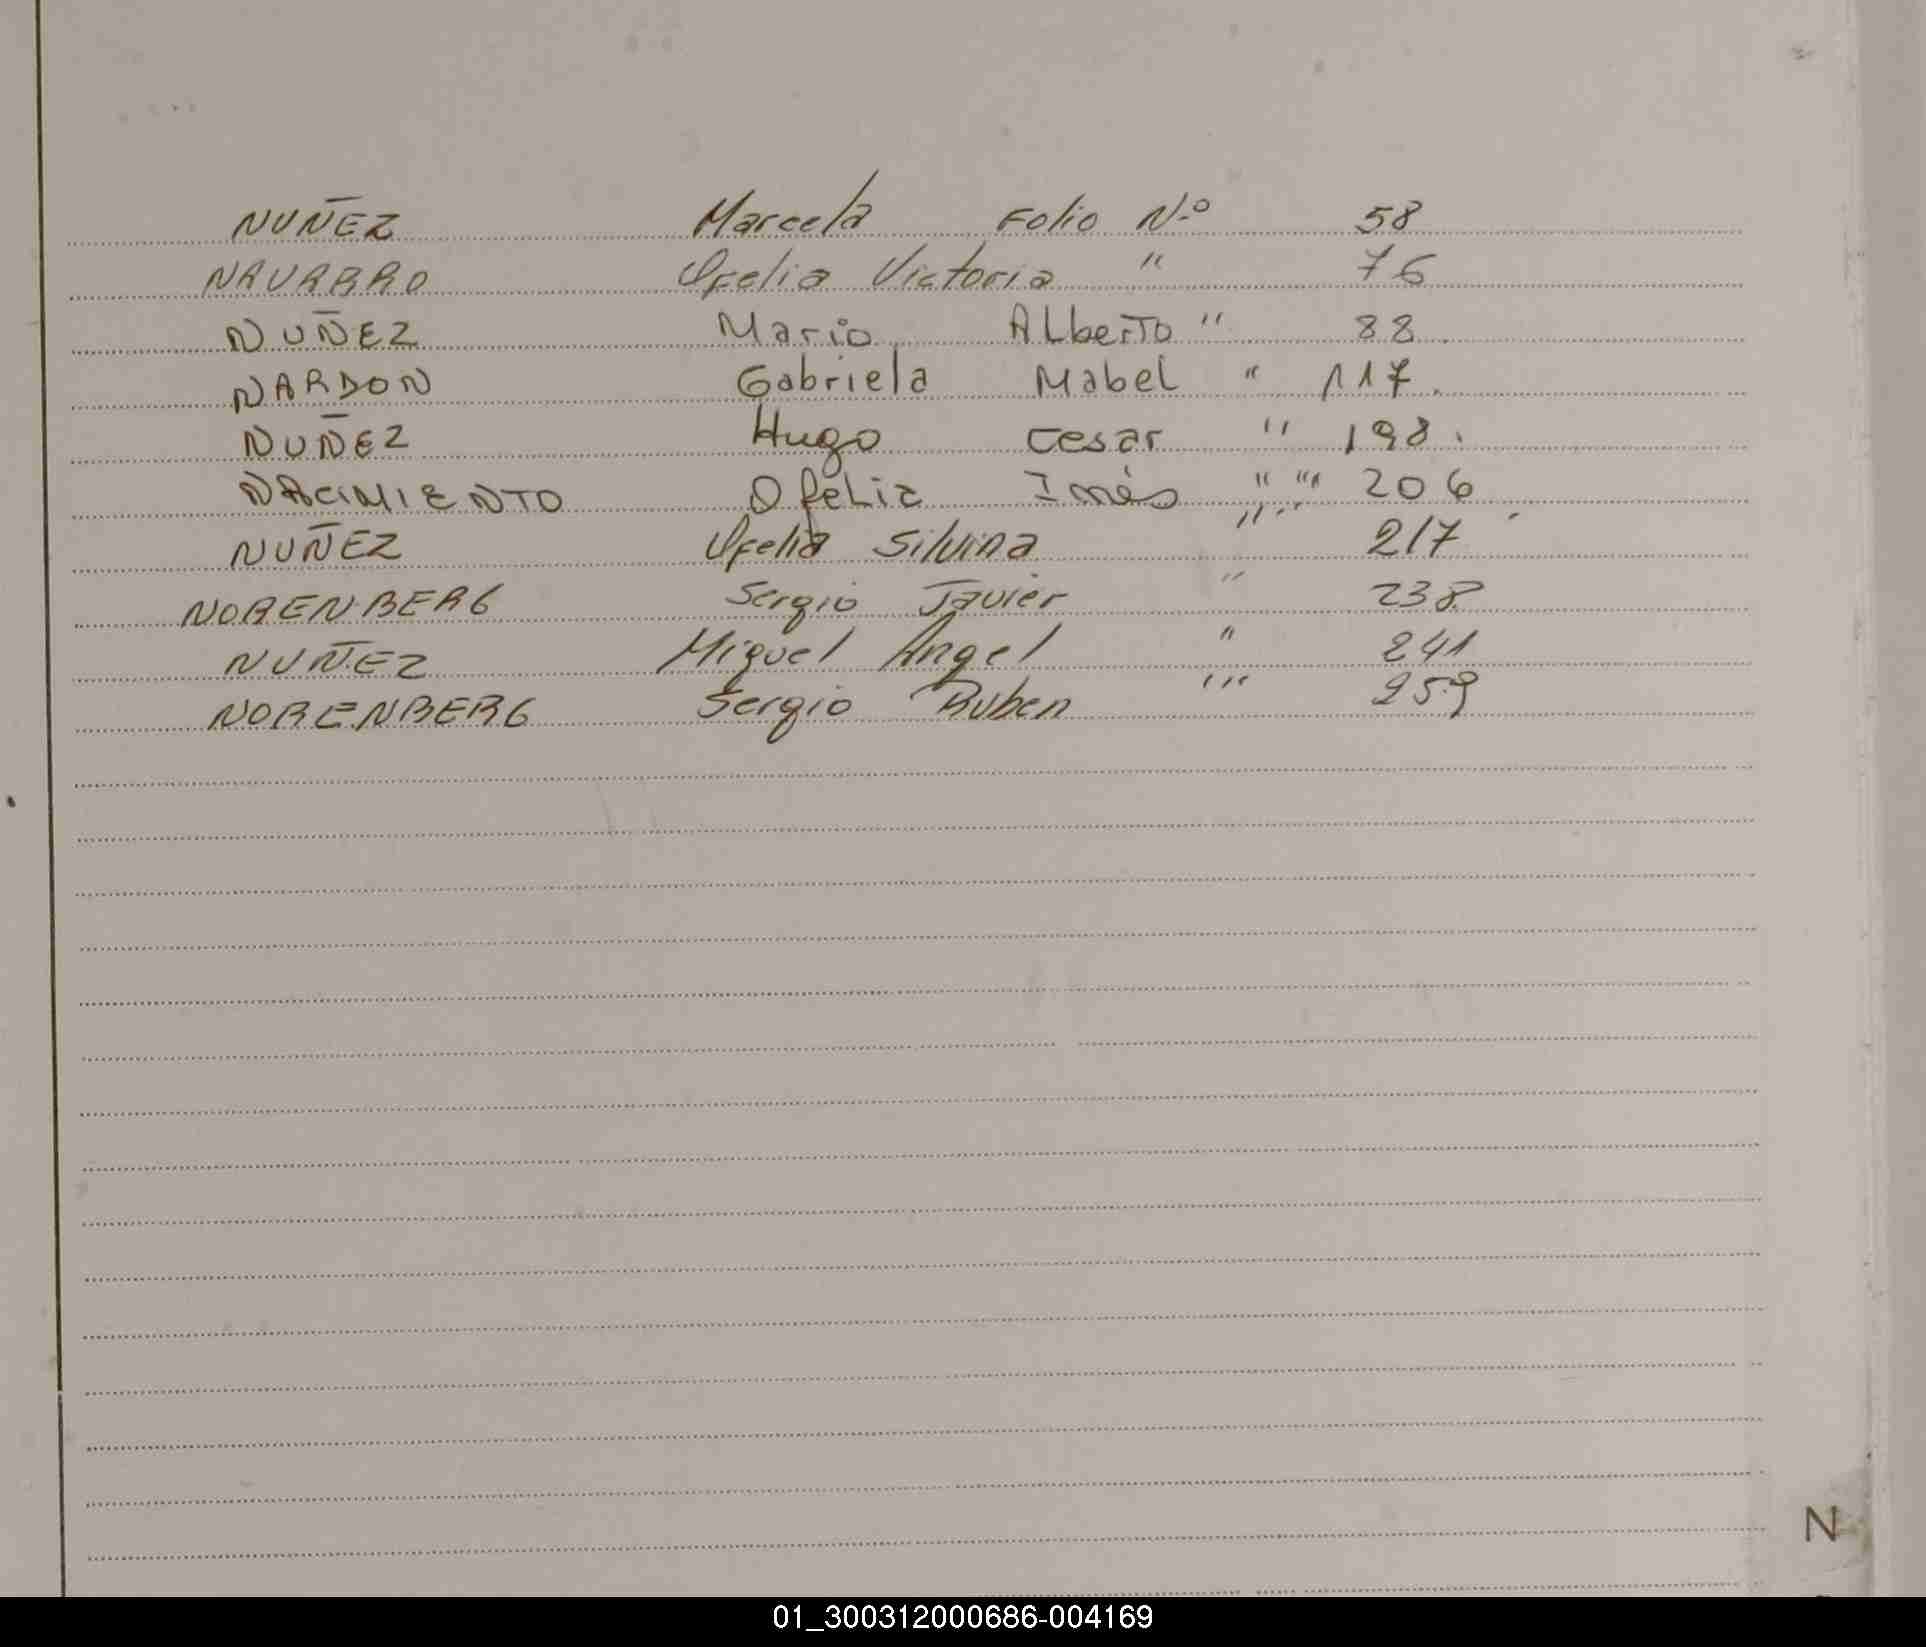 NUÑEZ Marcela Folio N.º 58
NAVARRO Ofelia Victoria " 76
NUÑEZ Mario Alberto " 88
NARDON Gabriela Mabel " 117.
NUÑEZ Hugo Cesar " 198.
NACIMIENTO Ofelia Inés " "" 206
NUÑEZ Ofelia Silvina "" 217
NORENBERG Sergio Javier " 238
NUÑEZ Miguel Angel " 241
NORENBERG Sergio Ruben "" 259
N
01_300312000686-004169